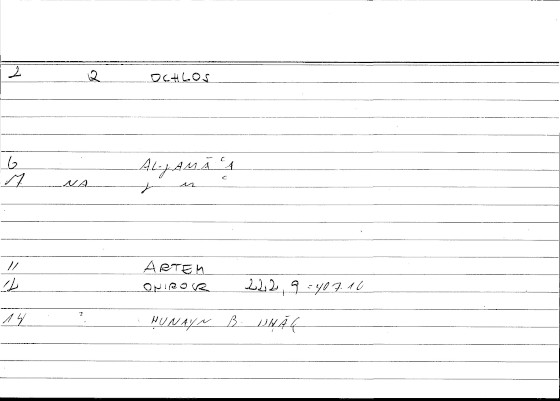 2 Q OCHLOS
6 AL-JAMĀʿA
M NA J M ʿ
11 ARTEM
12 ONIROCR 222, 9 = 407.16
14 ? HUNAYN B. ISḤĀQ